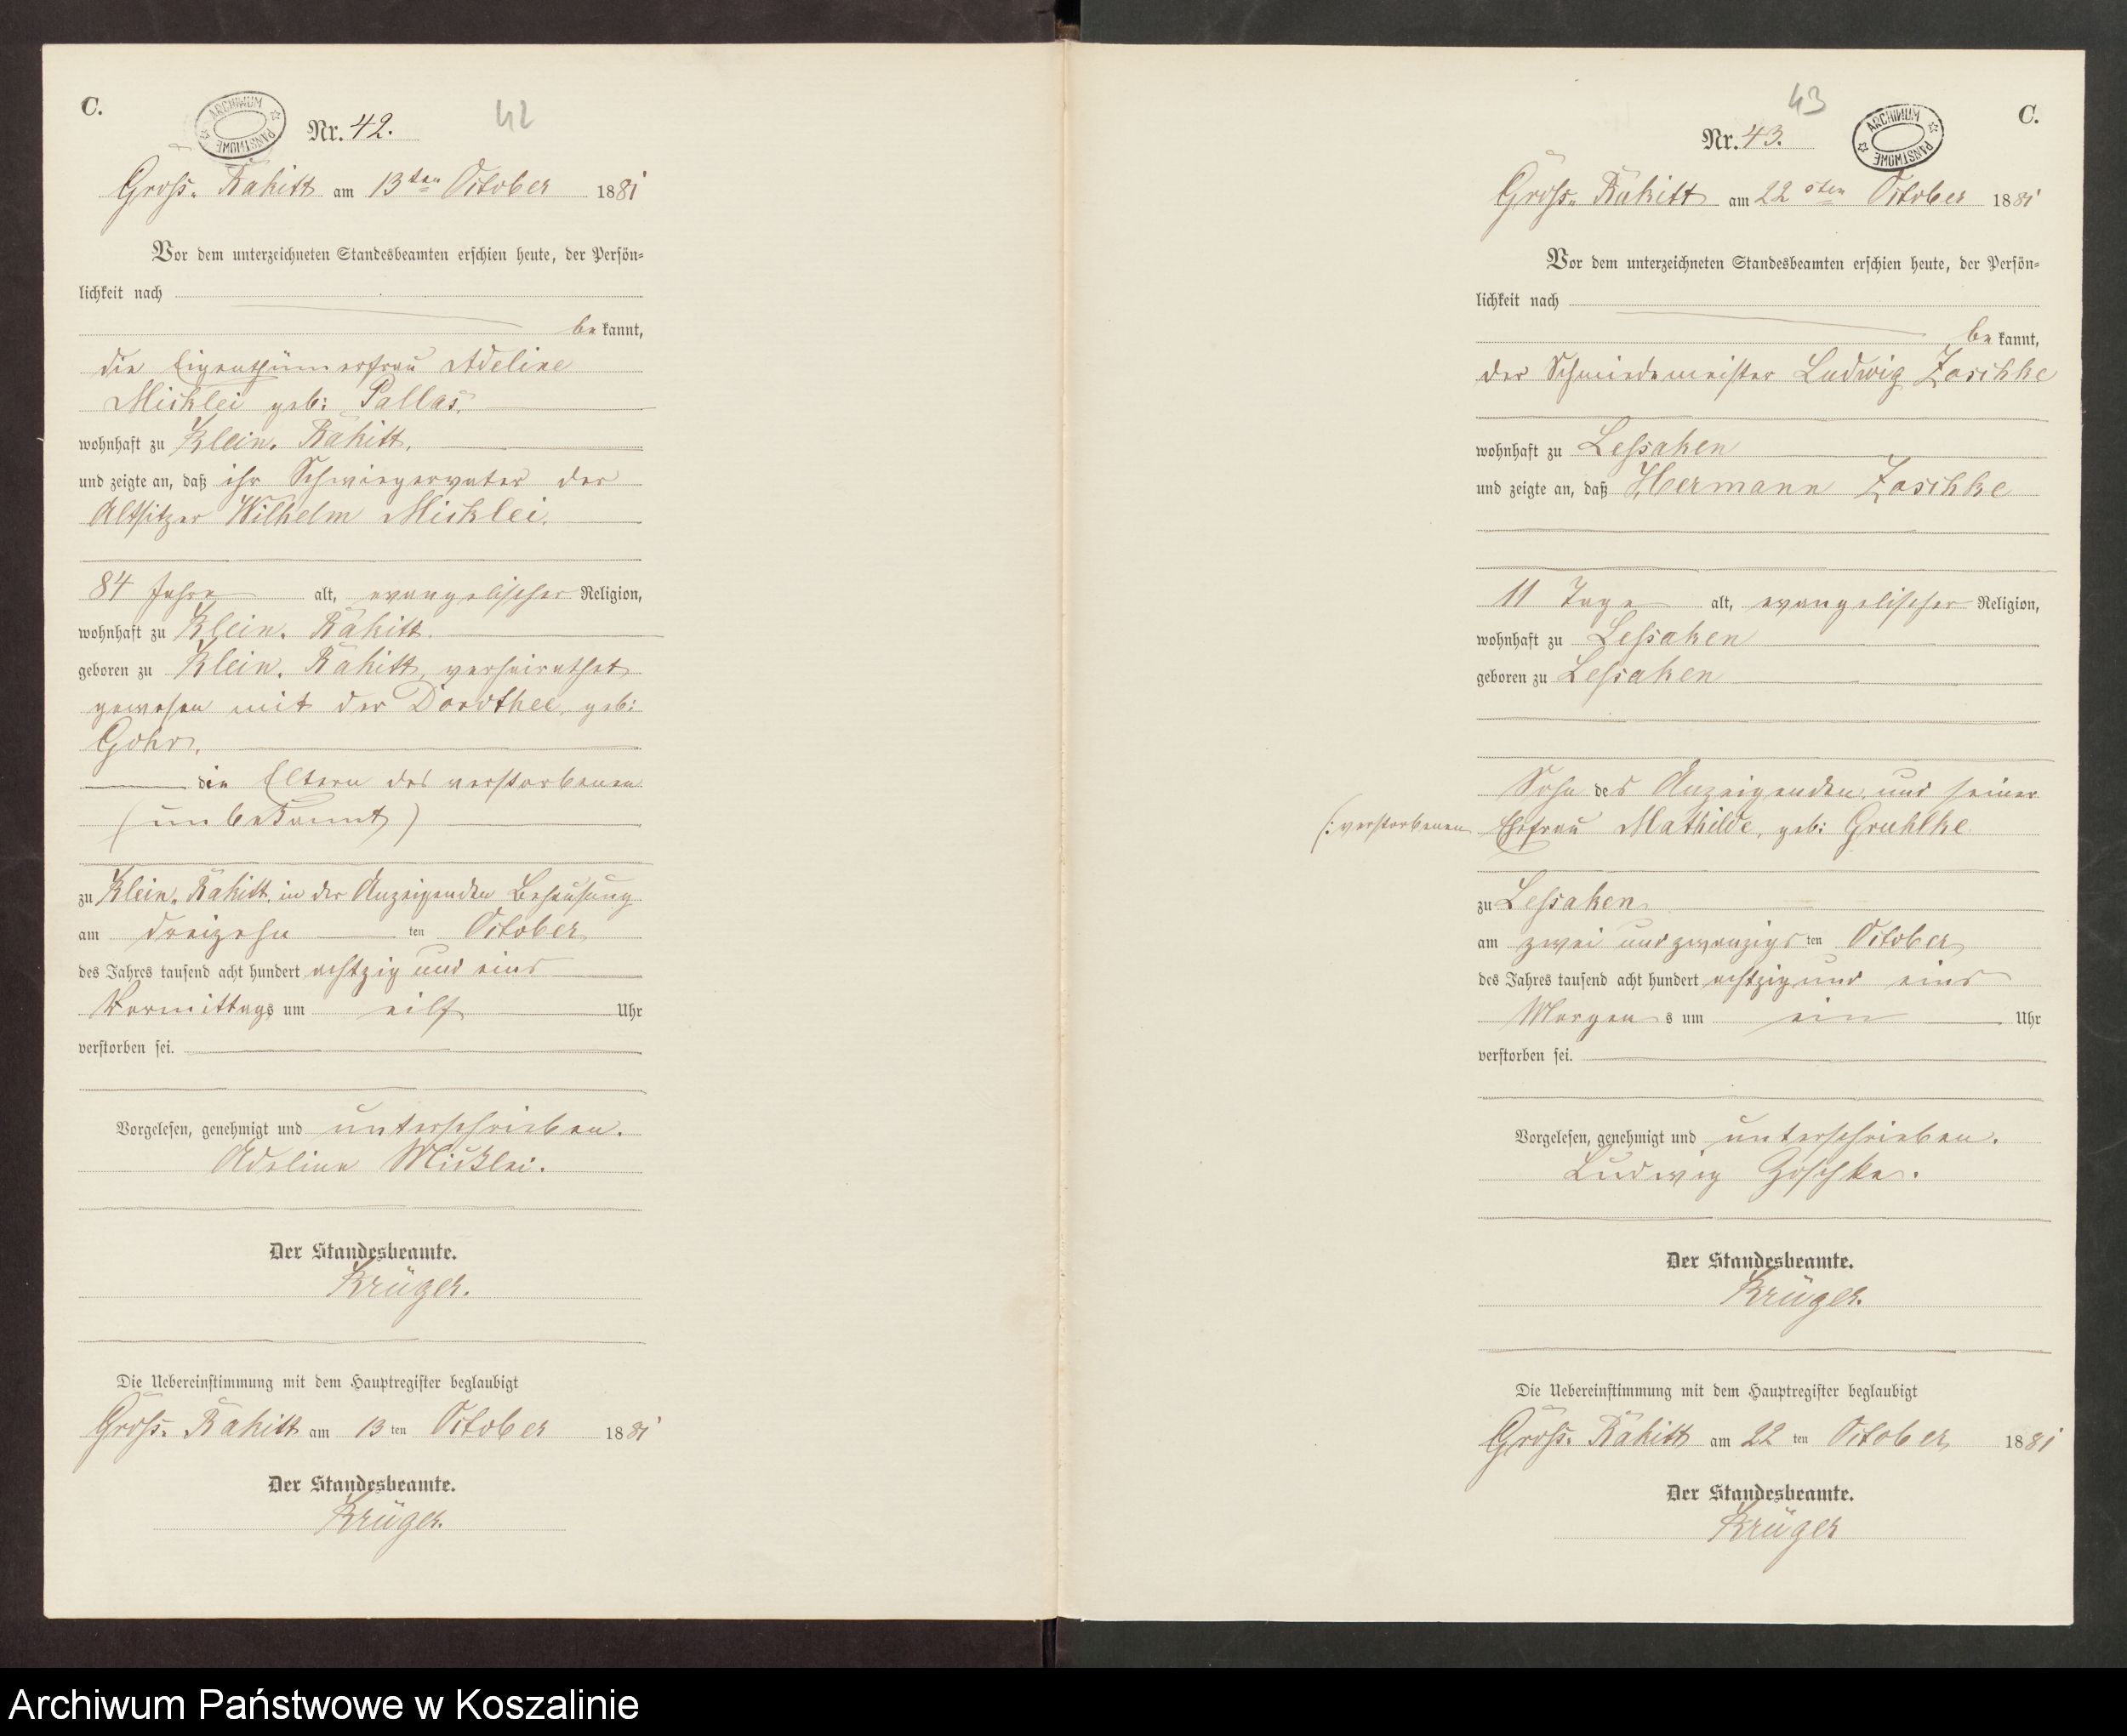 C.
ARCHIWUM PAŃSTWOWE
Nr. 42.
42
Groß. Rakitt am 13ten October 1881
Vor dem unterzeichneten Standesbeamten erschien heute, der Persön-
lichkeit nach
bekannt,
die Eigenthümerfrau Adeline
Micklei geb: Pallas,
wohnhaft zu Klein. Rakitt,
und zeigte an, daß ihr Schwiegervater der
Altsitzer Wilhelm Micklei,
84 Jahre alt, evangelischer Religion,
wohnhaft zu Klein. Rakitt.
geboren zu Klein. Rakitt, verheirathet
gewesen mit der Dorothee, geb:
Gohr,
die Eltern des verstorbenen
(unbekannt)
zu Klein. Rakitt, in der Anzeigenden Behausung
am dreizehnten October
des Jahres tausend acht hundert achtzig und eins
Vormittags um eilf Uhr
verstorben sei.
Vorgelesen, genehmigt und unterschrieben.
Adeline Micklei.
Der Standesbeamte.
Krüger.
Die Uebereinstimmung mit dem Hauptregister beglaubigt
Groß. Rakitt am 13ten October 1881
Der Standesbeamte.
Krüger.
43
C.
Nr. 43.
ARCHIWUM PAŃSTWOWE
Groß. Rakitt am 22sten October 1881
Vor dem unterzeichneten Standesbeamten erschien heute, der Persön-
lichkeit nach
bekannt,
der Schmiedemeister Ludwig Zoschke
wohnhaft zu Leßaken
und zeigte an, daß Hermann Zoschke
11 Tage alt, evangelischer Religion,
wohnhaft zu Leßaken
geboren zu Leßaken
Sohn des Anzeigenden und seiner
(: verstorbenen Ehefrau Mathilde, geb: Gruhlke
zu Leßaken
am zwei und zwanzigsten October
des Jahres tausend acht hundert achtzig und eins
Morgens um ein Uhr
verstorben sei.
Vorgelesen, genehmigt und unterschrieben.
Ludwig Zoschke.
Der Standesbeamte.
Krüger.
Die Uebereinstimmung mit dem Hauptregister beglaubigt
Groß. Rakitt am 22ten October 1881
Der Standesbeamte.
Krüger
Archiwum Państwowe w Koszalinie